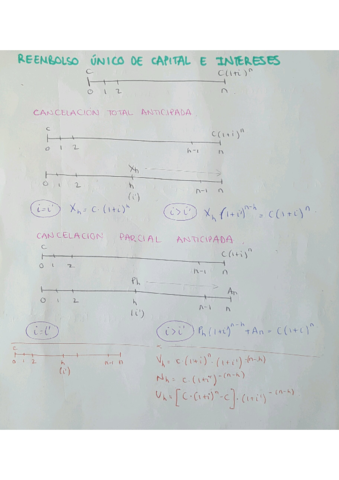 REENBOLSO ÚNICO DE CAPITAL E INTERESES
C C(1+i)^n
0 1 2 n
CANCELACION TOTAL ANTICIPADA
C C(1+i)^n
0 1 2 n-1 n
Xh
0 1 2 h n-1 n
(i')
i=i' Xh = C·(1+i)^h i>i' Xh (1+i')^n-h = C(1+i)^n
CANCELACION PARCIAL ANTICIPADA
C C(1+i)^n
0 1 2 n-1 n
Ph An
0 1 2 h n-1 n
(i')
i=i' i>i' Ph(1+i')^n-h + An = C(1+i)^n
C
0 1 2 h n-1 n
(i')
Vh = C·(1+i)^n·(1+i')^-(n-h)
Nh = C·(1+i')^-(n-h)
Uh = [C·(1+i)^n - C]·(1+i')^-(n-h)